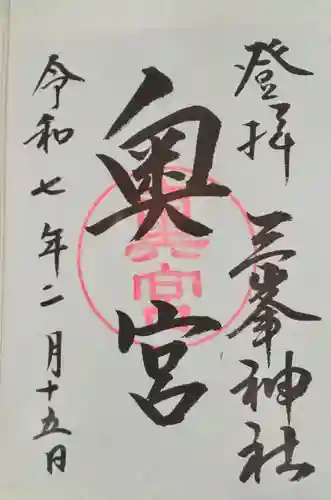 登拝 三峯神社
奥宮
令和七年二月十五日